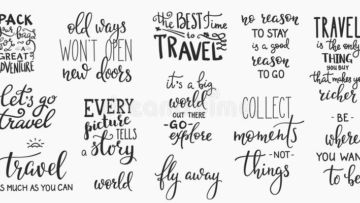 PACK
your bags
for a
GREAT
ADVENTURE
let's go
travel
travel
AS MUCH AS YOU CAN
old ways
WON'T OPEN
new doors
EVERY
picture
TELLS
a story
world
the BEST
time
to
TRAVEL
it's a big
world
OUT THERE
-GO-
explore
fly away
no reason
TO STAY
is a good
REASON
TO GO
COLLECT
moments
-NOT-
things
TRAVEL
is the only
THING
YOU BUY
that makes you
richer
-BE-
WHERE
YOU WANT
to be